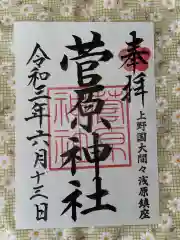 奉拝
上野国大間々浅原鎮座
菅原神社
令和三年六月十三日